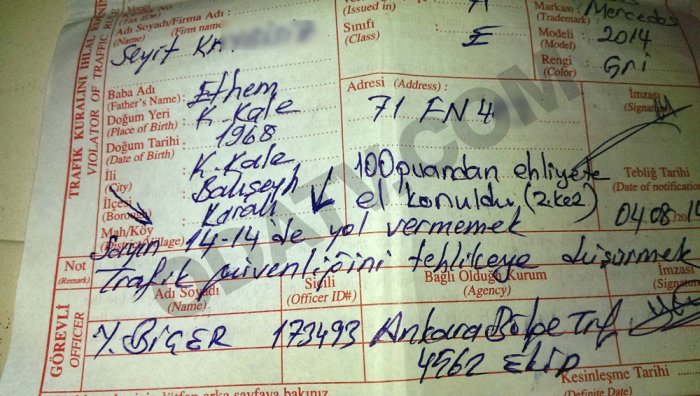 (Tax IDs)
Adı Soyadı/Firma Adı :
(Name) (Firm name)
Seyit Kr.
(Issued in)
Sınıfı
(Class)
E
Markası :
(Trademark)
Mercedes
Modeli
(Model)
2014
Rengi
(Color)
Gri
TRAFİK KURALINI İHLAL EDENİN
VIOLATOR OF TRAFFIC RULE
Baba Adı
(Father's Name) :
Ethem
Doğum Yeri
(Place of Birth) :
K.Kale
Doğum Tarihi
(Date of Birth) :
1968
İli
(City)
K.Kale
İlçesi
(Borough)
Bahşeyh
Mah/Köy
(District/Village)
Karaalı
Adresi (Address) :
71 EN 4
İmzası
(Signature)
100 puandan ehliyete
el konuldu. (2.kez)
Tebliğ Tarihi
(Date of notification)
04.08/
Not
(Remark)
14-14 de yol vermemek
Trafik güvenliğini tehlikeye düşürmek
GÖREVLİ
OFFICER
Adı Soyadı
(Name)
Y. BİÇER
Sicili
(Officer ID#)
173493
Bağlı Olduğu Kurum
(Agency)
Ankara Bölge Trf.
4562 Ekip
İmzası
(Signature)
Kesinleşme Tarihi
(Definite Date)
lütfen arka sayfaya bakınız.
ODATV.COM